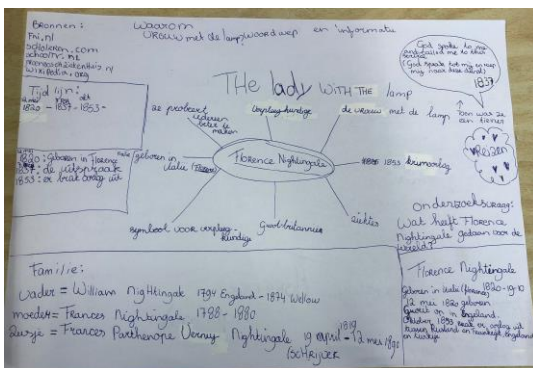 Bronnen:
Fni.nl
scholieren.com
schoolTV.nl
Wikipedia.org
waarom
VROUW met de lamp, woordwep en informatie
God spoke to me
and called me to his
(God sprak tot mij en riep
mij naar deze dienst)
1837
toen was ze
een tiener
THe lady WiTH THE lamp
Tijd lijn:
1820 - 1837 - 1853 -
1820: Geboren in Florence
1837: de uitspraak
1853: er brak oorlog uit
ze probeert
iedereen
beter te
maken
Verpleegkundige
de vrouw met de lamp
geboren in
Italie
Florence Nightingale
1853 krimoorlog
Reizen
symbool voor verpleeg-
kundige
Groot-britannie
ziektes
onderzoeksvraag:
Wat heeft Florence
Nightingale gedaan voor de
wereld?
Familie:
vader = William Nightingale 1794 England - 1874 Wellow
moeder = Frances Nightingale 1788 - 1880
zusje = Frances Parthenope Verney - Nightingale 19 april 1819 - 12 mei 1890
(SCHRIJVER
Florence Nightingale
Geboren in Italie (florence)
12 mei 1820 geboren
Groeit op in engeland.
Oktober, 1853 brak er oorlog uit
tussen Rusland en Frankrijk, Engeland
en turkije